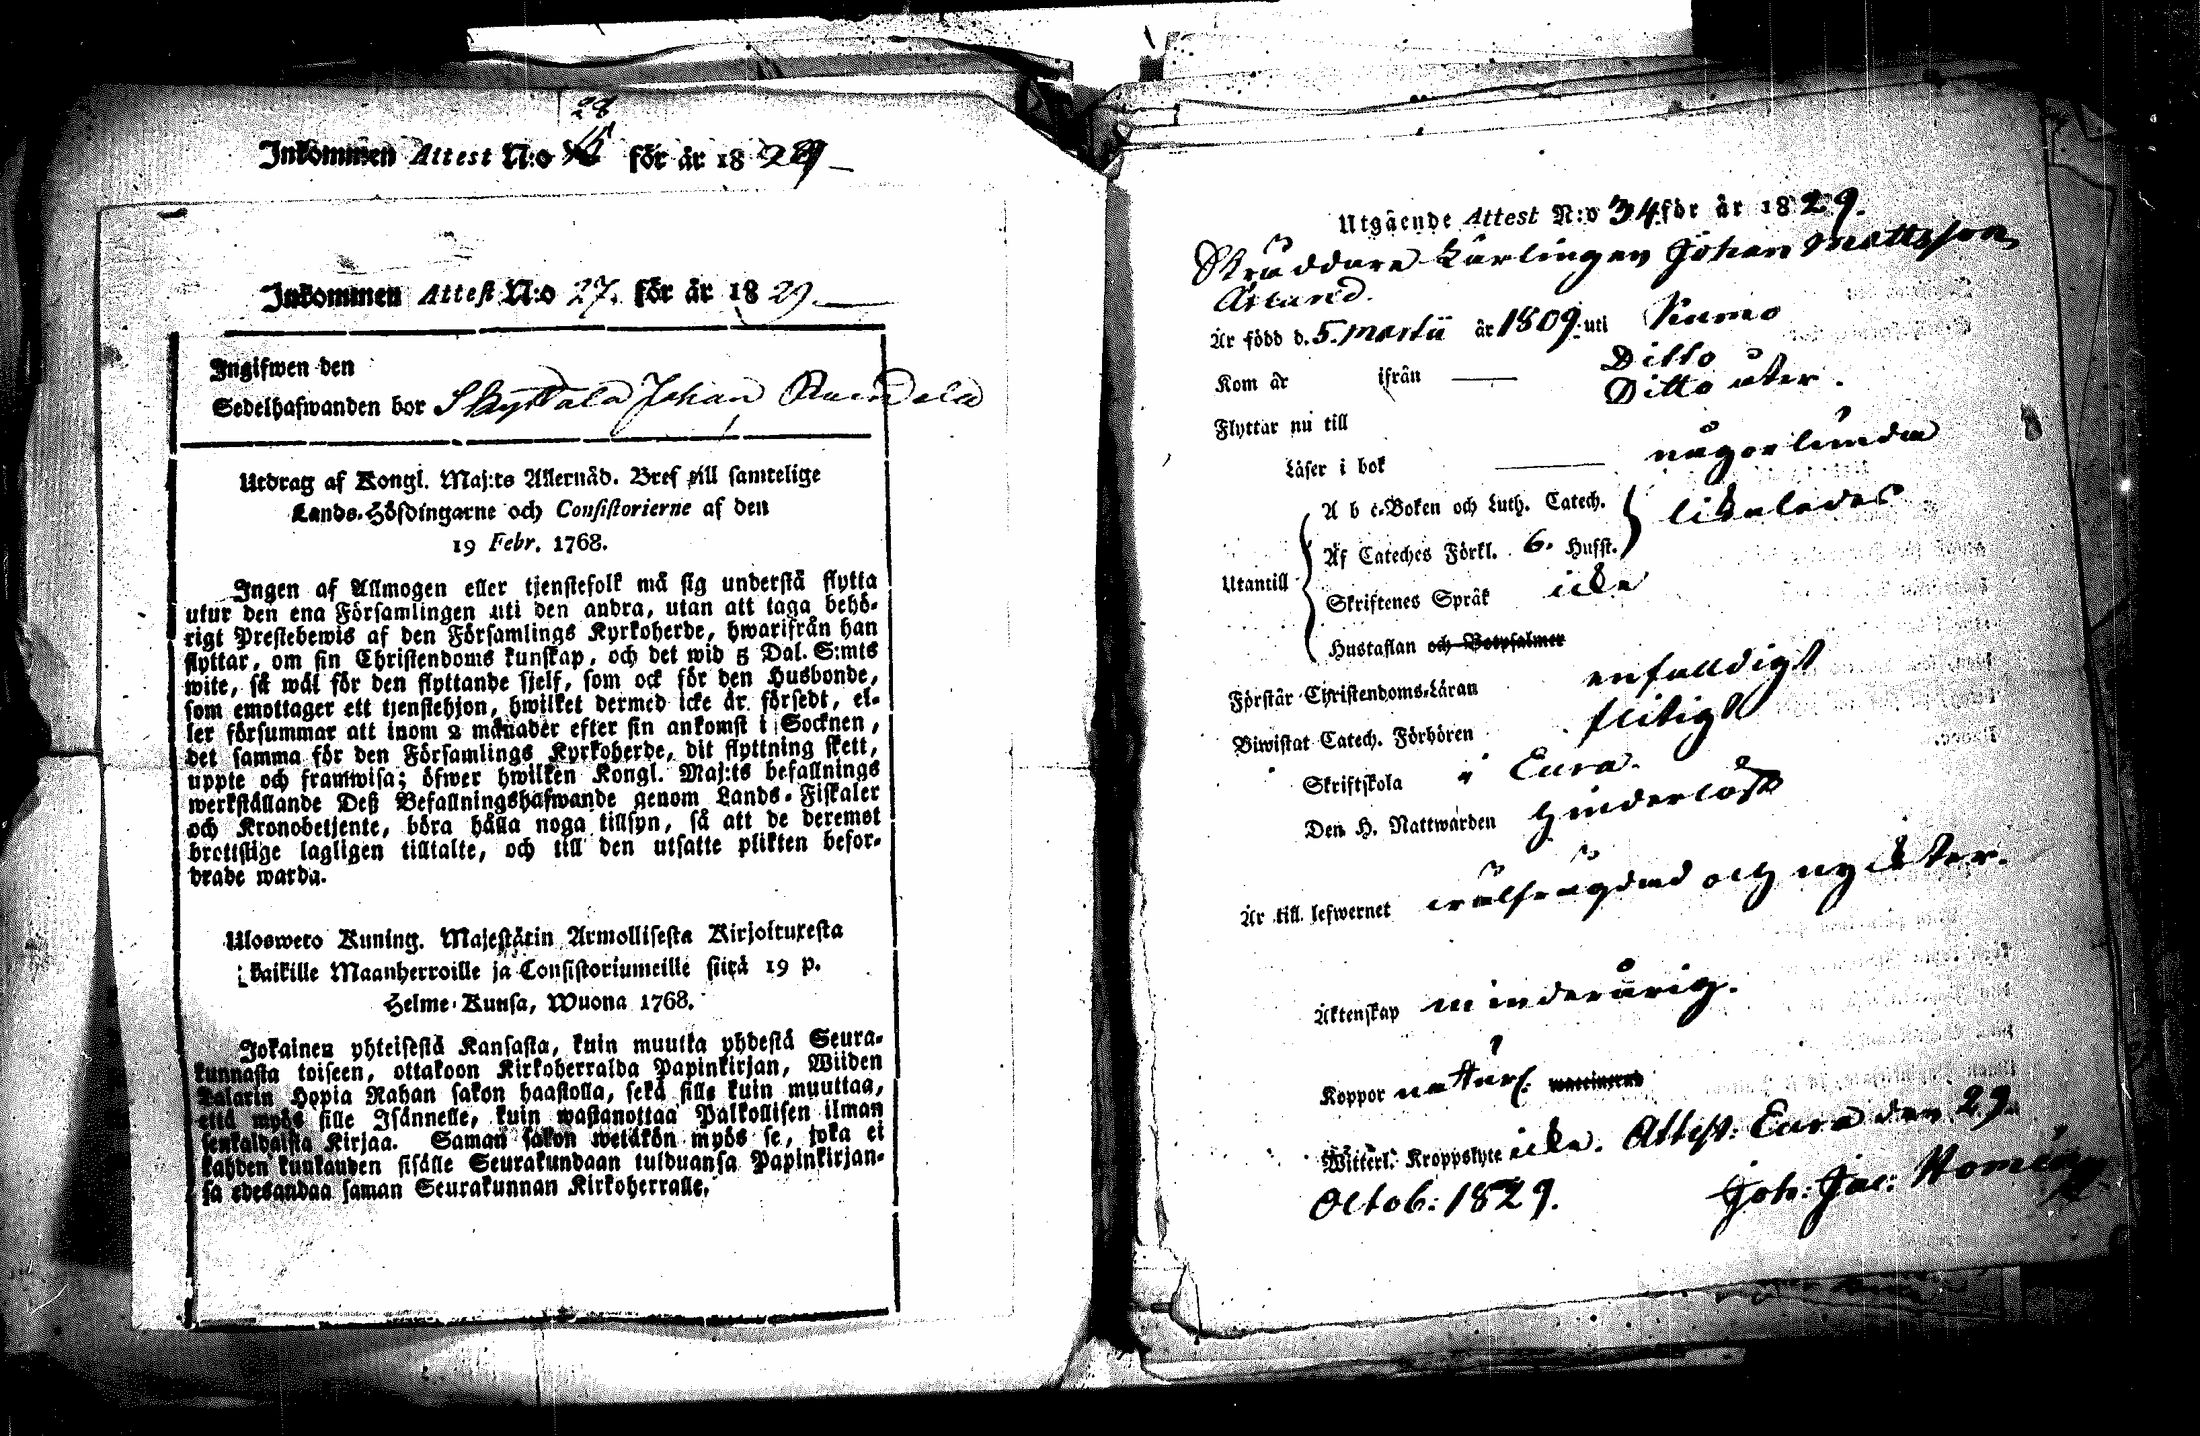 28
Inkommen Attest N:o för år 1829
Inkommen Attest N:o 27. för år 1829
Ingifwen den
Sedelhafwanden bor Skyttälä Johan
Utdrag af Kongl. Maj:ts Allernåd. Bref till samtelige
Lands-Höfdingarne och Consistorierne af den
19 Febr. 1768.
Ingen af Allmogen eller tjenstefolk må sig understå flytta
utur den ena Församlingen uti den andra, utan att taga behö-
rigt Prestebewis af den Församlings Kyrkoherde, hwarifrån han
flyttar, om sin Christendoms kunskap, och det wid 5 Dal. S:mts
wite, så wäl för den flyttande sjelf, som ock för den Husbonde,
som emottager ett tjenstehjon, hwilket dermed icke är försedt, el-
ler försummar att inom 2 månader efter sin ankomst i Socknen,
det samma för den Församlings Kyrkoherde, dit flyttning skett,
uppte och framwisa; öfwer hwilken Kongl. Maj:ts befallnings
werkställande Deß Befallningshafwande genom Lands-Fiskaler
och Kronobetjente, böra hålla noga tillsyn, så att de deremot
brottslige lagligen tilltalte, och till den utsatte plikten befor-
drade warda.
Ulosweto Kuning. Majestätin Armollisesta Kirjoituxesta
kaikille Maanherroille ja Consistoriumeille siitä 19 p.
Helme-Kuusa, Wuona 1768.
Jokainen yhteisestä Kansasta, kuin muutta yhdestä Seura-
kunnasta toiseen, ottakoon Kirkoherralda Papinkirjan, Wiiden
Talarin Hopia Rahan sakon haastolla, sekä sille kuin muuttaa,
että myös sille Isännelle, kuin wastanottaa Palkollisen ilman
senkaldaista Kirjaa. Saman sakon wetäkön myös se, joka ei
kahden kuukauden sisälle Seurakundaan tulduansa Papinkirjan-
sa edesandaa saman Seurakunnan Kirkoherralle.
Utgående Attest N:o 34 för år 1829.
Skräddare Lärlingen Johan Mattsson
Är född d. 5. Martii år 1809. uti Kumo
Kom år ifrån Ditto
Flyttar nu till Ditto åter.
Läser i bok någorlunda
A b c-Boken och Luth. Catech.
likaledes
Af Cateches Förkl. 6. Husst.
Utantill
Skriftenes Språk icke
Hustaflan och Botpsalmer
Förstår Christendoms-Läran enfaldigt
Biwistat Catech. Förhören flitigt
Skriftskola i Eura.
Den H. Nattwarden hinderlöst
Är till lefwernet wälfrägdad och nyckter.
Äktenskap minderårig.
Koppor naturl.
Witterl. Kroppslyte icke. Attest: Eura den 29.
Octob: 1829. Joh: Jac: